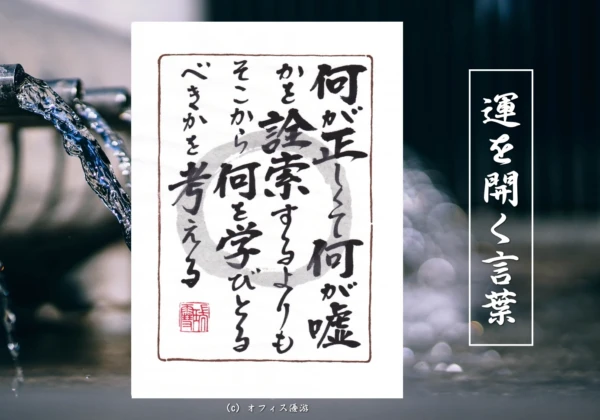 運を開く言葉
何が正しくて何が嘘
かを詮索するよりも
そこから何を学びとる
べきかを考える
(C) オフィス優游